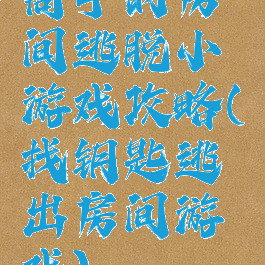 子的房
间逃脱小
游戏攻略(
找钥匙逃
出房间游
戏)